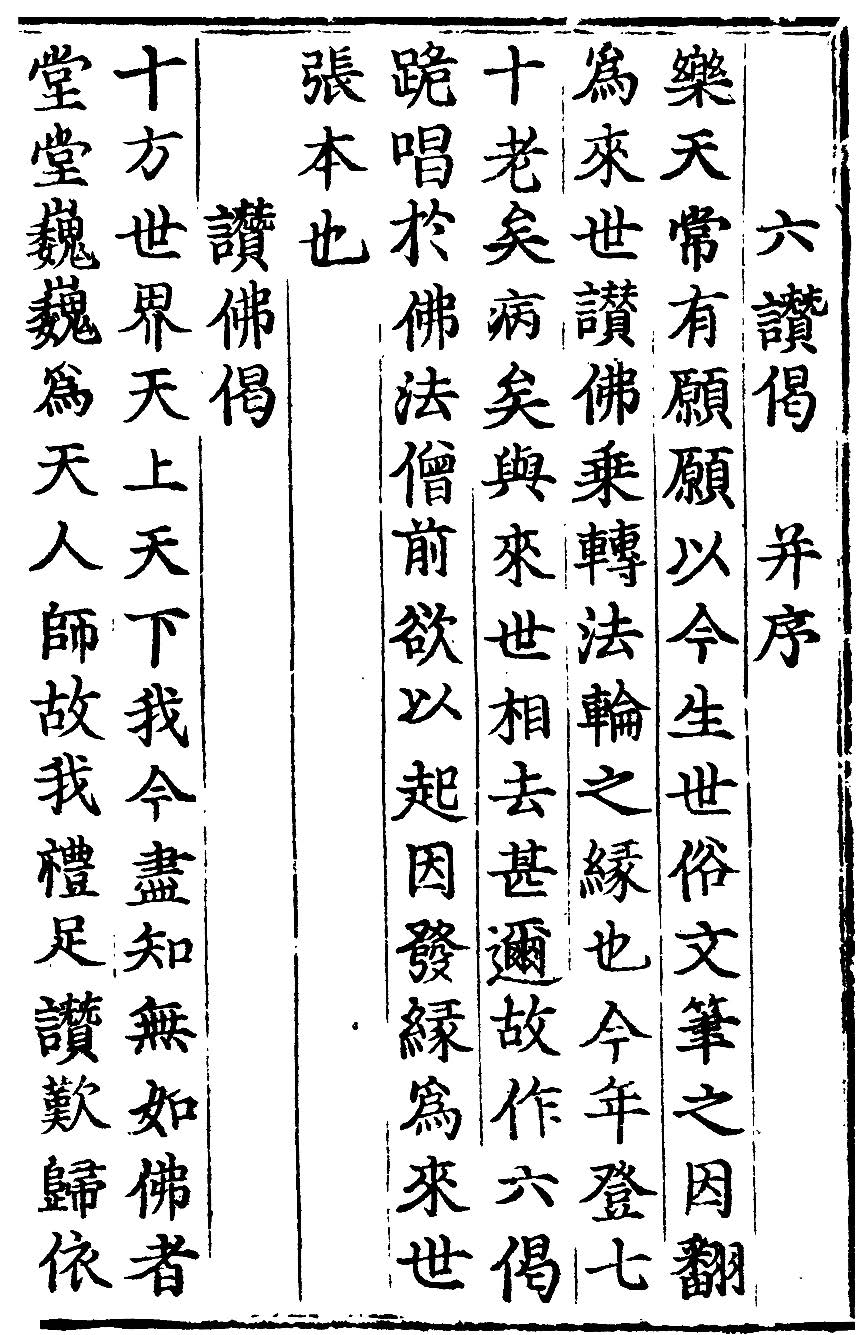 六讚偈　并序
樂天常有願願以今生世俗文筆之因翻
為來世讃佛乗轉法輪之縁也今年登七
十老矣病矣與來世相去甚邇故作六偈
跪唱於佛法僧前欲以起因發縁為來世
張本也
讚佛偈
十方世界天上天下我今盡知無如佛者
堂堂巍巍為天人師故我禮足讚歎歸依